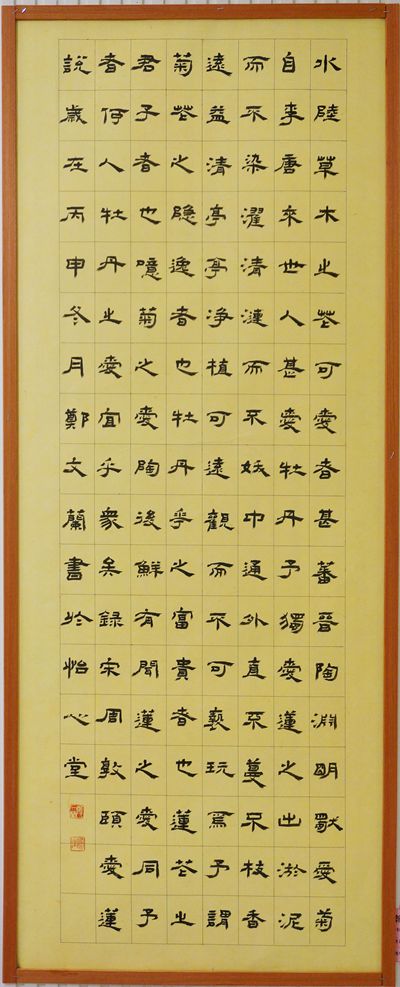 水陸草木之花可愛者甚蕃晉陶淵明獨愛菊
自李唐來世人甚愛牡丹予獨愛蓮之出淤泥
而不染濯清漣而不妖中通外直不蔓不枝香
遠益清亭亭净植可遠觀而不可褻玩焉予謂
菊花之隱逸者也牡丹花之富貴者也蓮花之
君子者也噫菊之愛陶後鮮有聞蓮之愛同予
者何人牡丹之愛宜乎眾矣録宋周敦頤愛蓮
說歲在丙申冬月鄭文蘭書於怡心堂